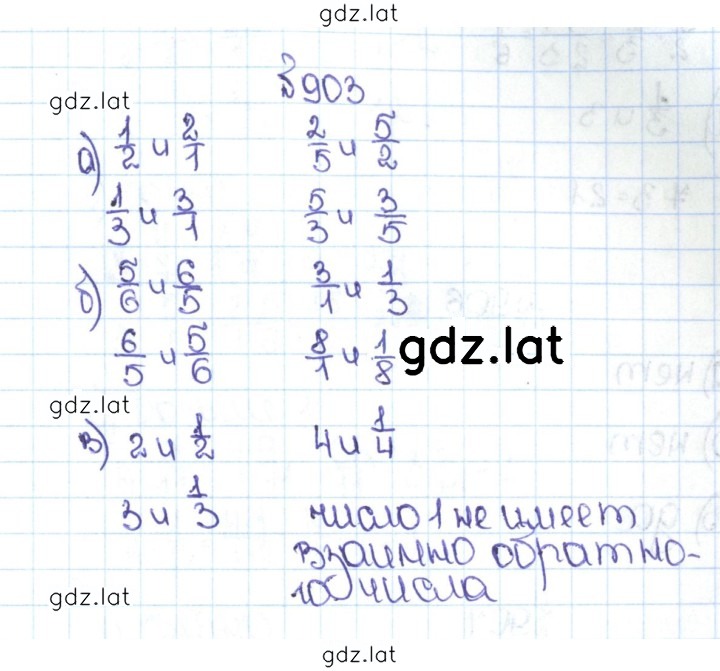 gdz.lat
№ 903
gdz.lat
а) 1/2 и 2/1 2/5 и 5/2
1/3 и 3/1 5/3 и 3/5
б) 5/6 и 6/5 3/1 и 1/3
6/5 и 5/6 8/1 и 1/8 gdz.lat
gdz.lat
в) 2 и 1/2 4 и 1/4
3 и 1/3 число 1 не имеет
взаимно обратно-
го числа
gdz.lat
gdz.lat